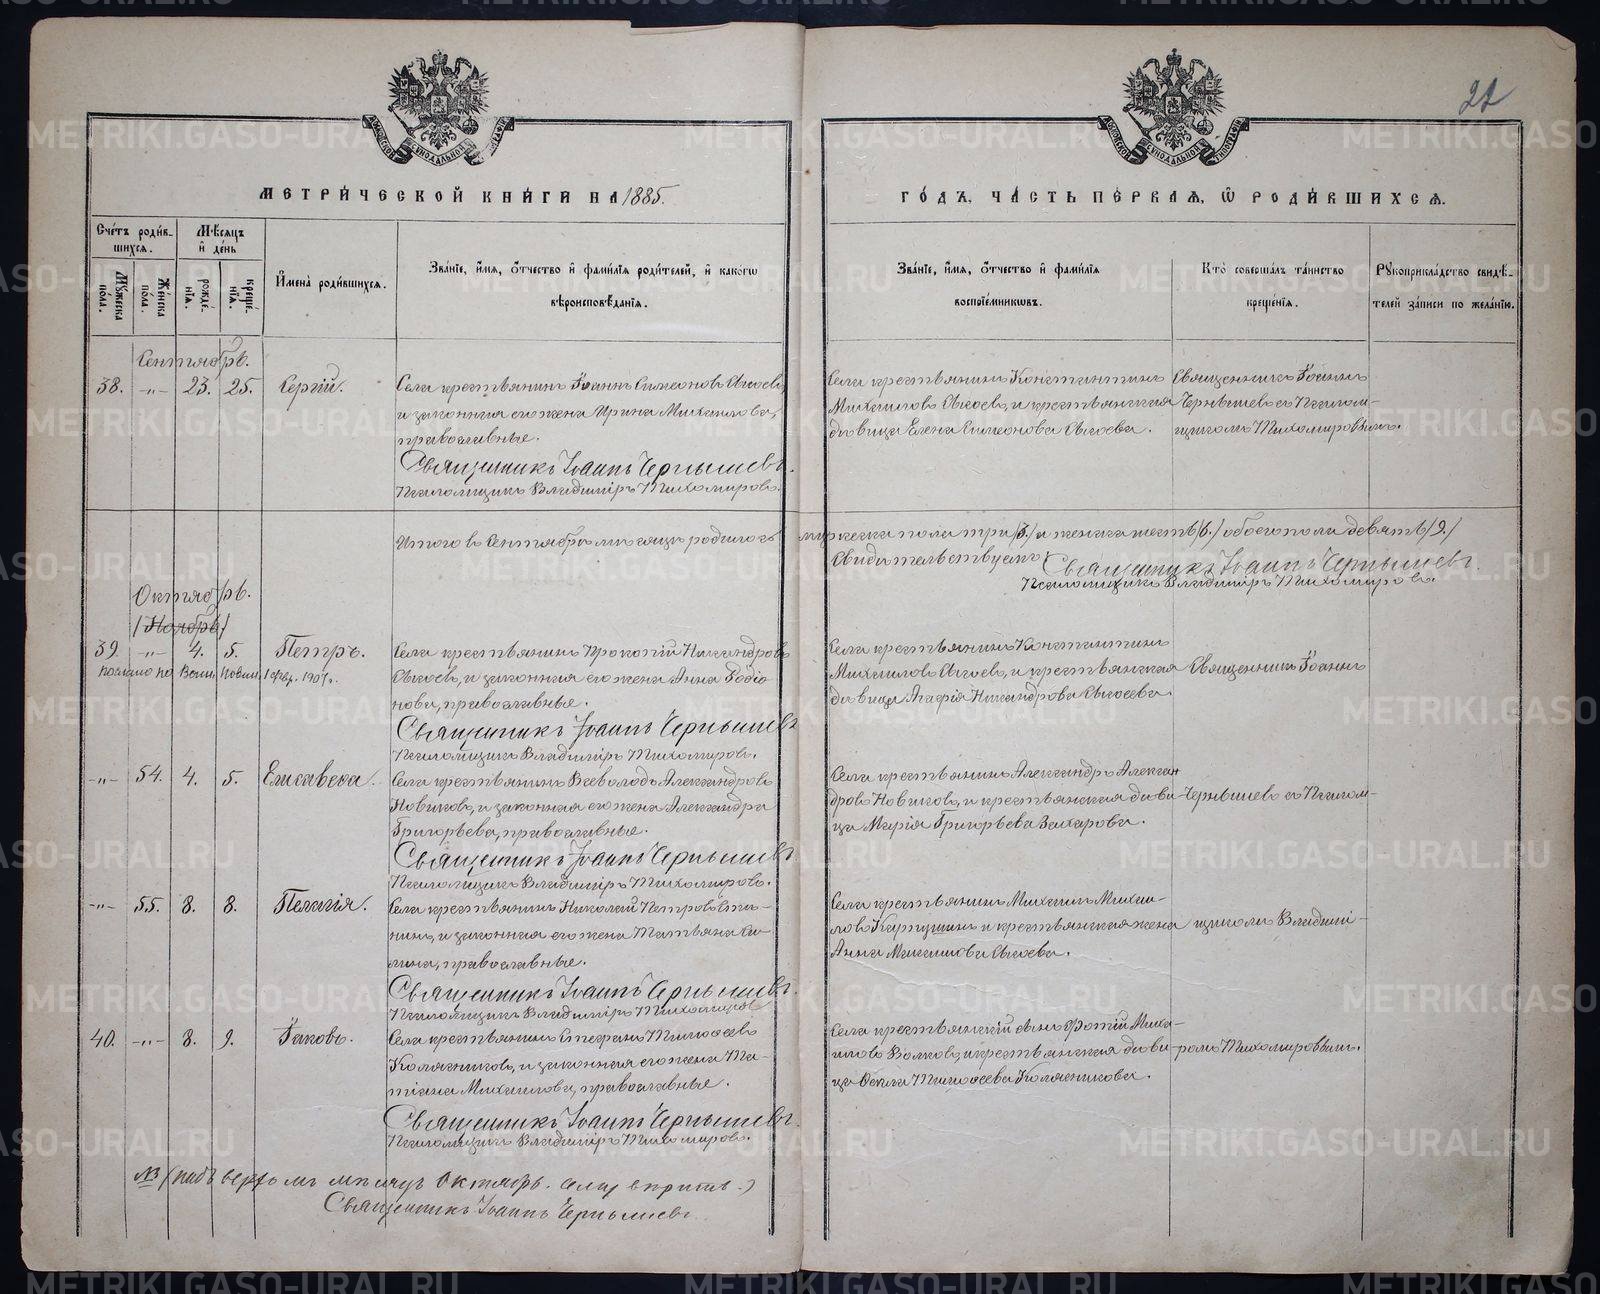 21
МЕТРИЧЕСКОЙ КНИГИ НА 1885.
ГОДЪ, ЧАСТЬ ПЕРВАЯ, Ѡ РОДИВШИХСЯ.
Счетъ родившихся.
Мужеска пола.
Женска пола.
Мѣсяцъ и день
рожденія.
крещенія.
Имена родившихся.
Званіе, имя, отчество и фамилія родителей, и какогѡ
вѣроисповѣданія.
Званіе, имя, отчество и фамилія
воспріемникѡвъ.
Кто совершалъ таинство
крещенія.
Рукоприкладство свидѣтелей записи по желанію.
Сентябрь.
38. -„- 23. 25. Сергій.
Села крестьянинъ Іоаннъ Симеоновъ
и законная его жена Ирина Михаилова,
православные.
Священникъ Іоаннъ Чернышевъ.
Псаломщикъ Владиміръ Тихомировъ.
Села крестьянинъ Константинъ
Михаиловъ и крестьянская
дѣвица Елена Симеонова
Священникъ Іоаннъ
Чернышевъ съ Псалом-
щикомъ Тихомировымъ.
Итого въ Сентябрѣ мѣсяцѣ родилось мужеска пола три /3./ и женска шесть /6./ обоего пола девять /9./
Свидѣтельствуемъ: Священникъ Іоаннъ Чернышевъ.
Псаломщикъ Владиміръ Тихомировъ.
Октябрь.
/Ноябрь/
39. -„- 4. 5. Петръ.
1 февр. 190
Села крестьянинъ Прокопій Никандровъ
и законная его жена Анна Родіо
нова, православные.
Священникъ Іоаннъ Чернышевъ
Псаломщикъ Владиміръ Тихомировъ.
Села крестьянинъ Константинъ
Михаиловъ и крестьянская
дѣвица Агафія Никандрова
Священникъ Іоаннъ
-„- 54. 4. 5. Елисавета.
Села крестьянинъ Всеволодъ Александровъ
Новиковъ, и законная его жена Александра
Григорьева, православные.
Священникъ Іоаннъ Чернышевъ
Псаломщикъ Владиміръ Тихомировъ.
Села крестьянинъ Александръ Алексан
дровъ Новиковъ, и крестьянская дѣви-
ца Марія Григорьева Захарова.
Чернышевъ съ Псалом-
-„- 55. 8. 8. Пелагія.
Села крестьянинъ Николай Петровъ
и законная его жена Татьяна
православные.
Священникъ Іоаннъ Чернышевъ.
Псаломщикъ Владиміръ Тихомировъ
Села крестьянинъ Михаилъ Михаи-
ловъ и крестьянская жена
Анна
щикомъ Владимі-
40. -„- 8. 9. Іаковъ.
Села крестьянинъ Стефанъ Тимофеевъ
Колясниковъ, и законная его жена Та-
тіана Михаилова, православные.
Священникъ Іоаннъ Чернышевъ.
Псаломщикъ Владиміръ Тихомировъ.
Села крестьянскій сынъ Фотій Миха-
иловъ Волковъ, и крестьянская дѣви-
ца Тимофеева Колясникова.
ромъ Тихомировымъ.
NB (надъ мѣсяцъ Октябрь.
Священникъ Іоаннъ Чернышевъ
METRIKI.GASO-URAL.RU